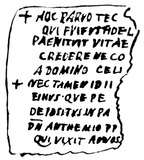 + HOC PARVO TEC
QVI FVIET VADEL
PAENITAT VITAE
CREDERE NE CO
A DOMINO CELI
+ NEC TAMEN ID II
EINVS · QVE PE
DEIOSITVS IN PA
DN ANTHEMIO PP
QVI VIXIT ANNOS